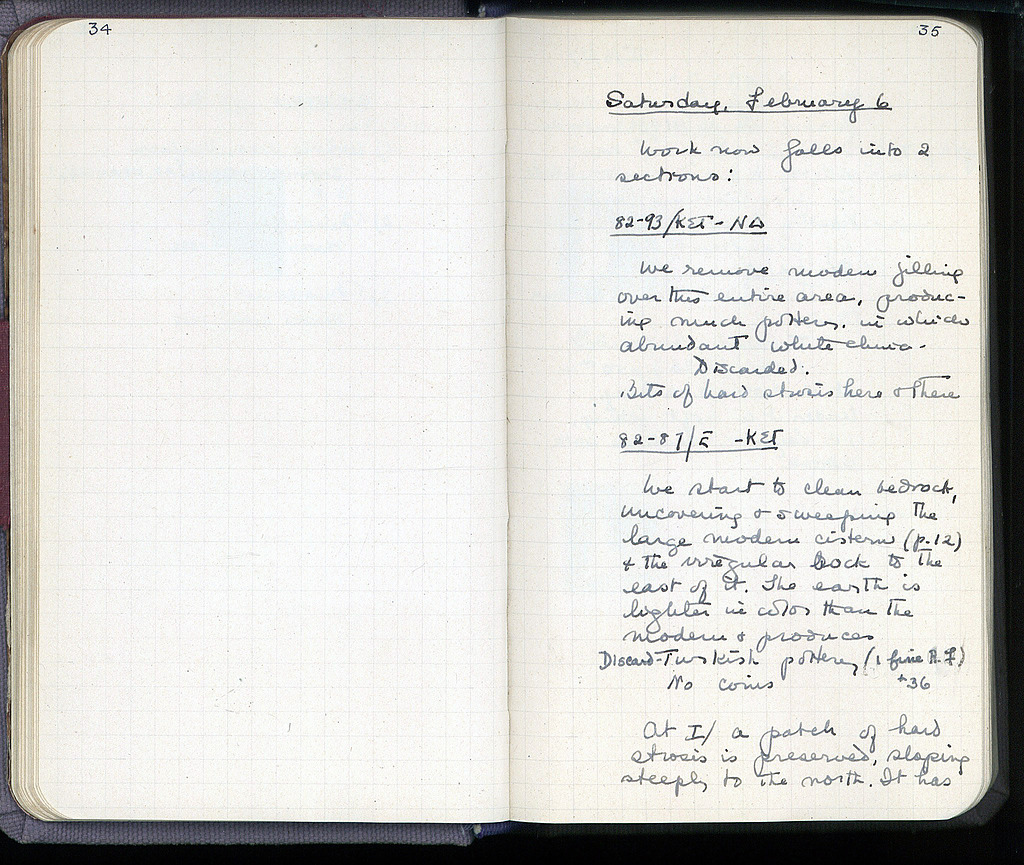 34
35
Saturday, February 6
Work now falls into 2
sections:
82-93/ΚΣΤ-ΝΔ
We remove modern filling
over this entire area, produc-
ing much pottery. in which
abundant white china.
Discarded.
Bits of hard strosis here & there
82-87/Ε -ΚΣΤ
We start to clean bedrock,
uncovering & sweeping the
large modern cistern (p.12)
& the irregular rock to the
east of it. The earth is
lighter in color than the
modern & produces
Discard-Turkish pottery (1 fine A.F.)
No coins *36
At I/ a patch of hard
strosis is preserved, sloping
steeply to the north. It has